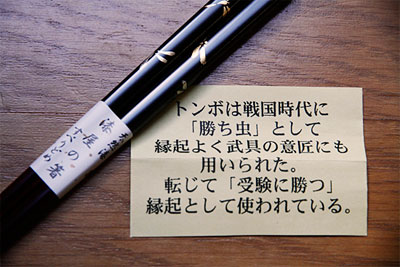 トンボは戦国時代に
「勝ち虫」として
縁起よく武具の意匠にも
用いられた。
転じて「受験に勝つ」
縁起として使われている。
漆屋の箸
すべりどめ